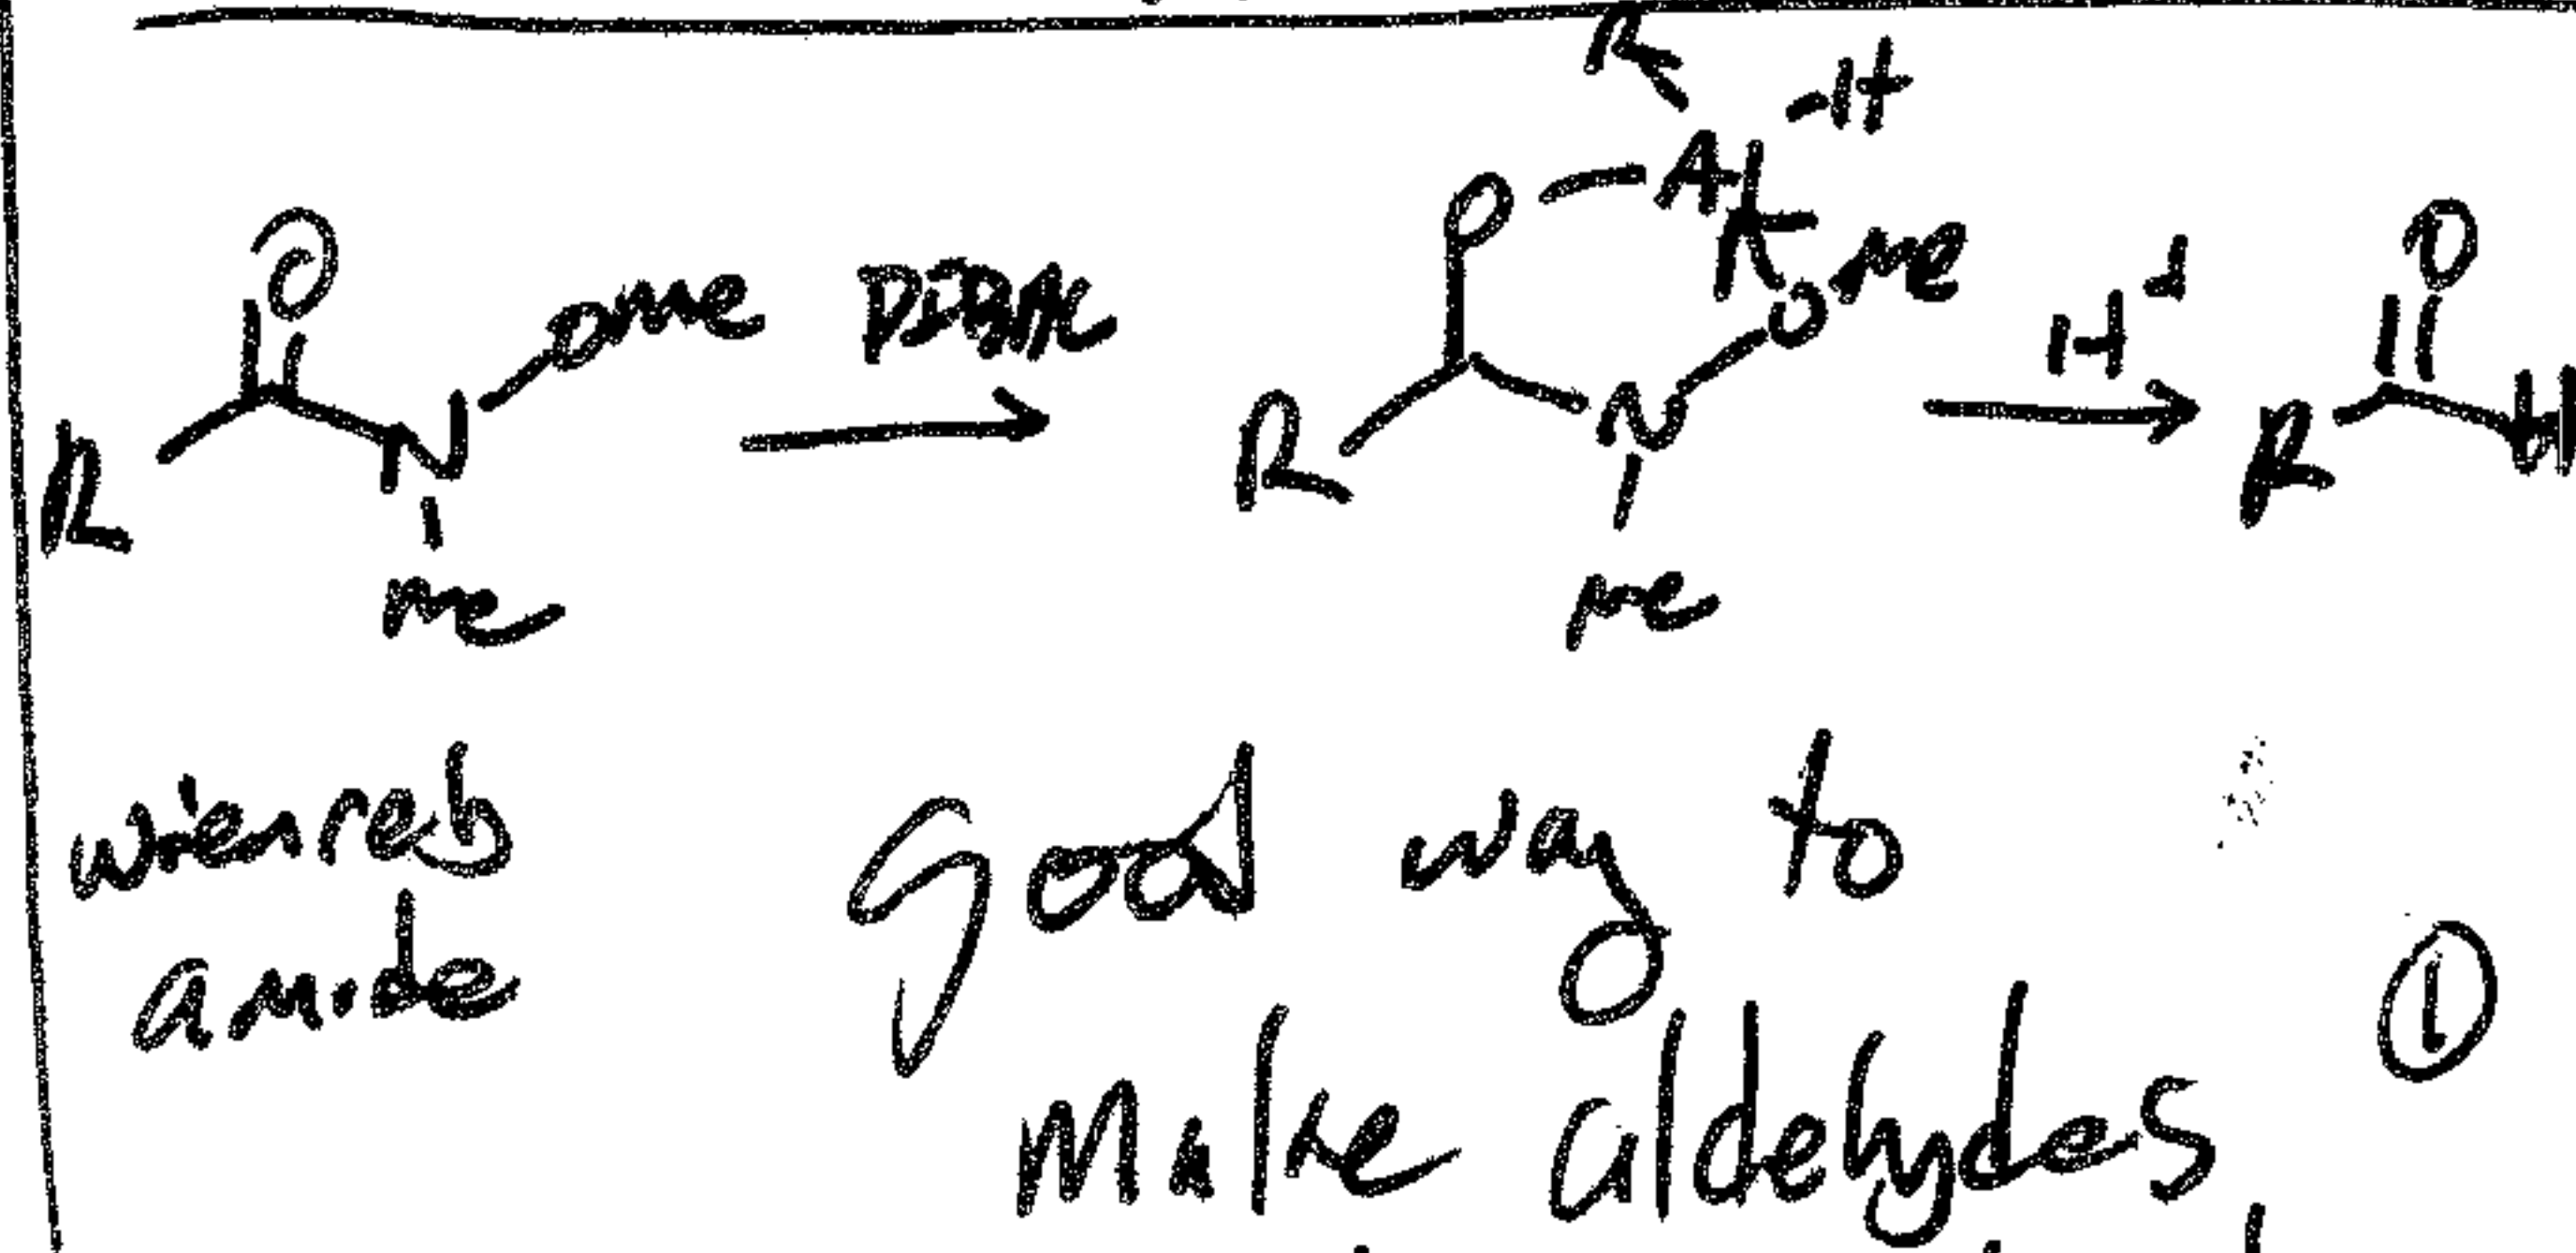 R
-H
O
O - Al
OMe
DIBAL
OMe
H+
O
R
N
R
N
R
H
Me
Me
wienreb
amide
Good way to
Make aldehydes,
①